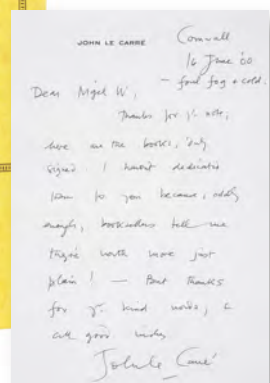 JOHN LE CARRÉ
Cornwall
16 June '00
– foul fog & cold.
Dear Nigel W,
Thanks for yr note,
here are the books, duly
signed. I haven't dedicated
them to you because, oddly
enough, booksellers tell me
they're worth more just
plain! — But thanks
for yr kind words, &
all good wishes
John le Carré